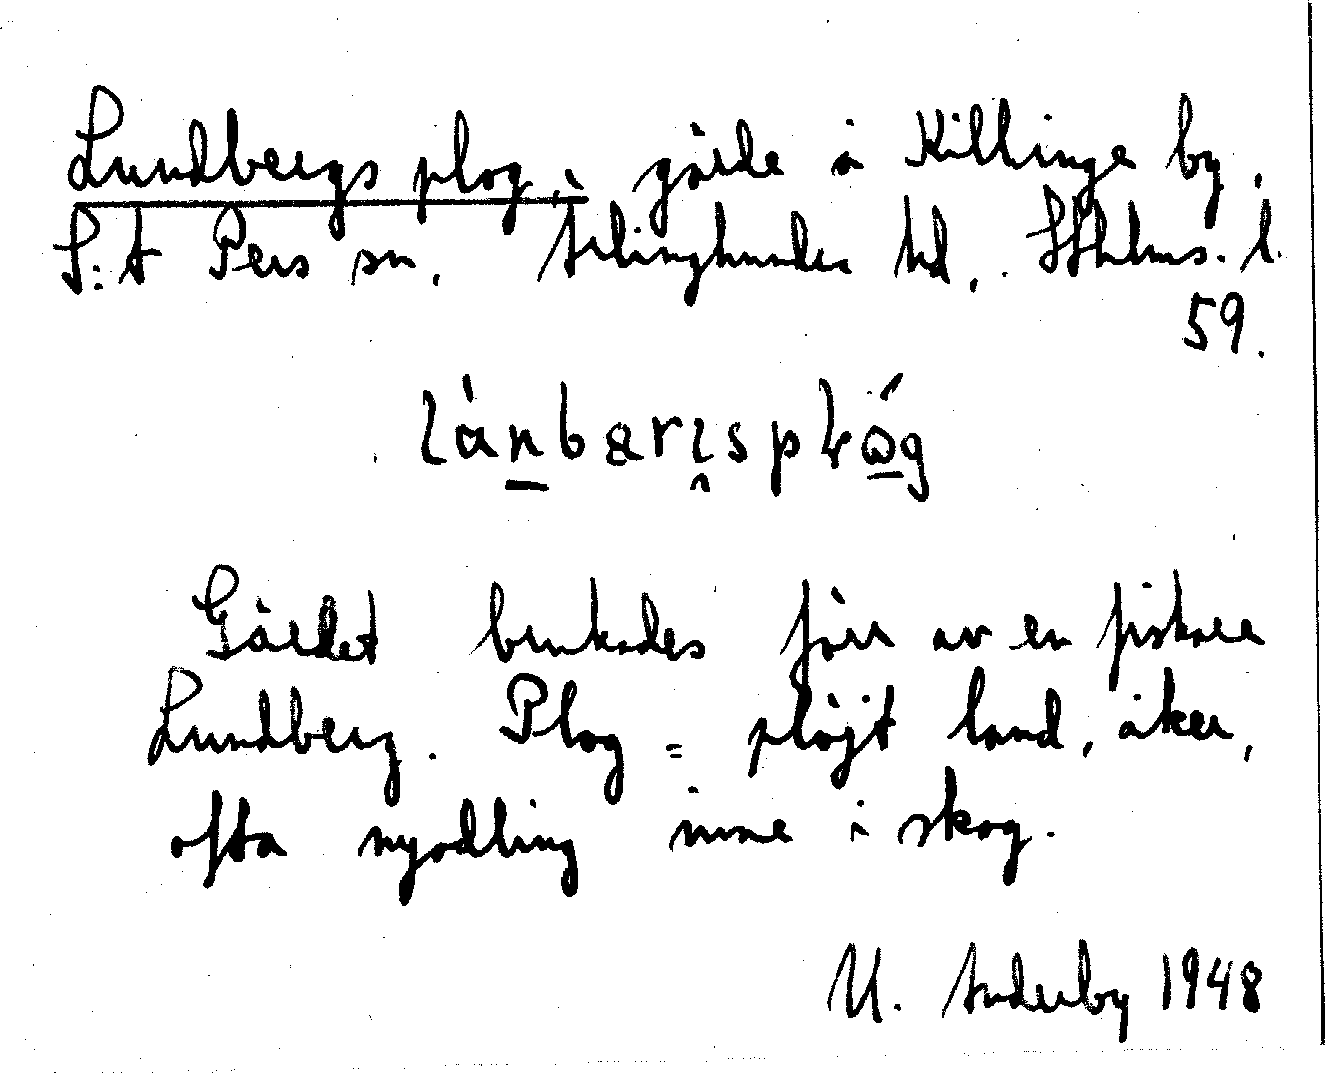 Lundbergs plog, gärde å Killinge by,
S:t Pers sn, Ärlinghundra hd, Sthlms. l.
59.
Gärdet brukades förr av en fiskare
Lundberg. Plog = plöjt land, åker,
ofta nyodling inne i skog.
U. Anderby 1948